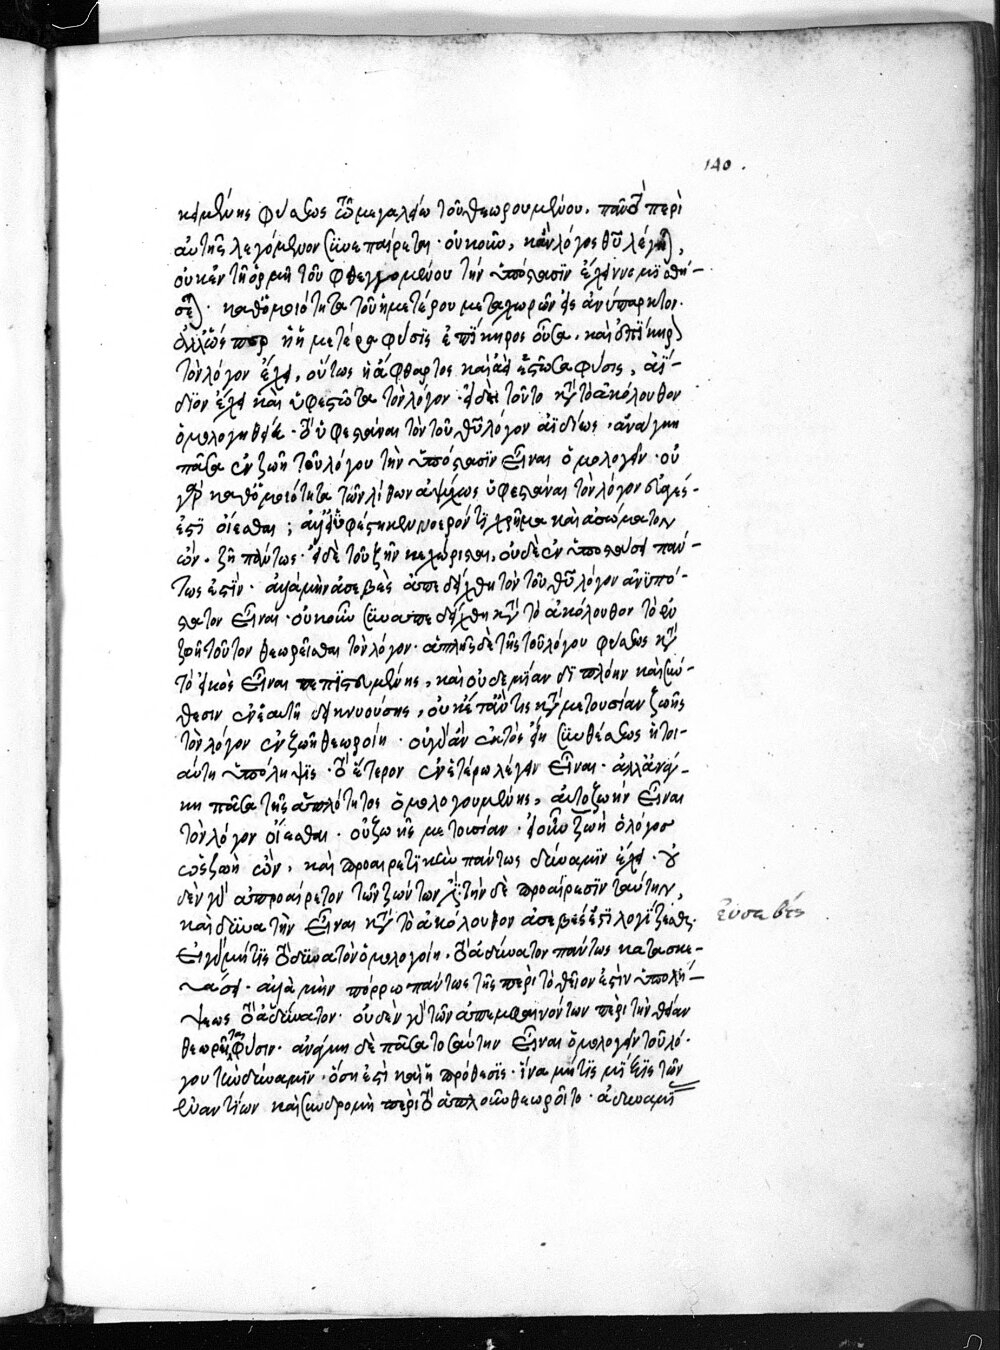 140.
κειμένης φύσεως τῷ μεγαλείῳ τοῦ θεωρουμένου. πᾶν τὸ περὶ
αὐτῆς λεγόμενον συνεπαίρεται. οὐκοῦν, κἂν λόγος θεοῦ λέγηται,
οὐκ ἐν τῇ ὁρμῇ τοῦ φθεγγομένου τὴν ὑπόστασιν ἔχειν νομισθή-
σεται. καθ' ὁμοιότητα τοῦ ἡμετέρου μεταχωρῶν εἰς ἀνύπαρκτον.
ἀλλ' ὥσπερ ἡ ἡμετέρα φύσις ἐπίκηρος οὖσα, καὶ ἐπίκηρον
τὸν λόγον ἔχει, οὕτως ἡ ἄφθαρτος καὶ ἀεὶ ἑστῶσα φύσις, ἀΐ-
διον ἔχει καὶ ὑφεστῶτα τὸν λόγον. εἰ δὲ τοῦτο κατὰ τὸ ἀκόλουθον
ὁμολογηθείη. τὸ ὑφεστάναι τὸν τοῦ θεοῦ λόγον ἀϊδίως, ἀνάγκη
πᾶσα ἐν ζωῇ τοῦ λόγου τὴν ὑπόστασιν εἶναι ὁμολογεῖν. οὐ
γὰρ καθ' ὁμοιότητα τῶν λίθων ἀψύχως ὑφεστάναι τὸν λόγον εὐαγές
ἐστὶ οἴεσθαι; ἀλλ' εἰ ὑφέστηκε νοερόν τι χρῆμα καὶ ἀσώματον
ὤν. ζῇ πάντως. εἰ δὲ τοῦ ζῆν κεχώρισται, οὐδὲ ἐν ὑποστάσει πάν-
τως ἐστίν. ἀλλὰ μὴν ἀσεβὲς ἀπεδείχθη τὸν τοῦ θεοῦ λόγον ἀνυπό-
στατον εἶναι. οὐκοῦν συναπεδείχθη κατὰ τὸ ἀκόλουθον τὸ ἐν
ζωῇ τοῦτον θεωρεῖσθαι τὸν λόγον. ἁπλῆς δὲ τῆς τοῦ λόγου φύσεως κατὰ
τὸ εἰκὸς εἶναι πεπιστευμένης, καὶ οὐδεμίαν διπλόην καὶ σύν-
θεσιν ἐν ἑαυτῇ δεικνυούσης, οὐκέτ' ἄν τις κατὰ μετουσίαν ζωῆς
τὸν λόγον ἐν ζωῇ θεωροίη. οὐ γὰρ ἂν ἐκτὸς εἴη συνθέσεως ἡ τοι-
αύτη ὑπόληψις. τὸ ἕτερον ἐν ἑτέρῳ λέγειν εἶναι. ἀλλ' ἀνάγ-
κη πᾶσα τῆς ἁπλότητος ὁμολογουμένης, αὐτοζωὴν εἶναι
τὸν λόγον οἴεσθαι. οὐ ζωῆς μετουσίαν. εἰ οὖν ζωὴ ὁ λόγος
ὡς ζωὴ ὤν, καὶ προαιρετικὴν πάντως δύναμιν ἔχει. οὐ-
δὲν γὰρ ἀπροαίρετον τῶν ζώντων ἐστί. τὴν δὲ προαίρεσιν ταύτην,
καὶ δυνατὴν εἶναι κατὰ τὸ ἀκόλουθον ἀσεβές ἐστι λογίζεσθαι.
εὐσεβές
εἰ γὰρ μή τις τὸ δυνατὸν ὁμολογοίη, τὸ ἀδύνατον πάντως κατασκευ-
άσει. ἀλλὰ μὴν πόρρω πάντως τῆς περὶ τὸ θεῖον ἐστὶν ὑπολή-
ψεως τὸ ἀδύνατον. οὐδὲν γὰρ τῶν ἀπεμφαινόντων περὶ τὴν θείαν
θεωρεῖται φύσιν. ἀνάγκη δὲ πᾶσα τοσαύτην εἶναι ὁμολογεῖν τοῦ λό-
γου τὴν δύναμιν, ὅση ἐστὶ καὶ ἡ πρόθεσις. ἵνα μή τις μίξις τῶν
ἐναντίων καὶ συνδρομὴ περὶ τὸ ἁπλοῦν θεωροῖτο. ἀδυναμί